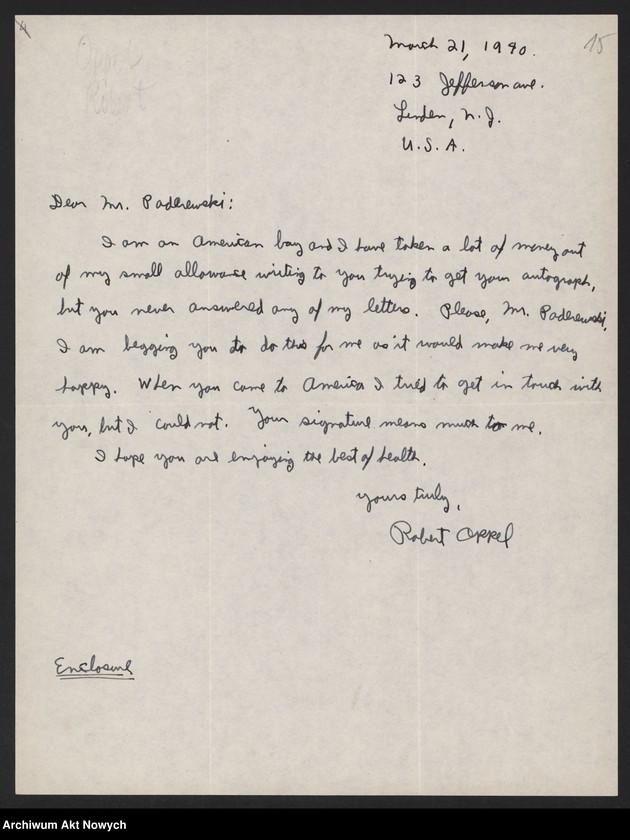 March 21, 1940.
15
123 Jefferson ave.
Linden, N.J.
U.S.A.
Robert
Dear Mr. Paderewski:
I am an American boy and I have taken a lot of money out
of my small allowance writing to you trying to get your autograph,
but you never answered any of my letters. Please, Mr. Paderewski,
I am begging you to do this for me as it would make me very
happy. When you came to America I tried to get in touch with
you, but I could not. Your signature means much to me.
I hope you are enjoying the best of health.
Yours truly,
Robert Oppel
Enclosure
Archiwum Akt Nowych